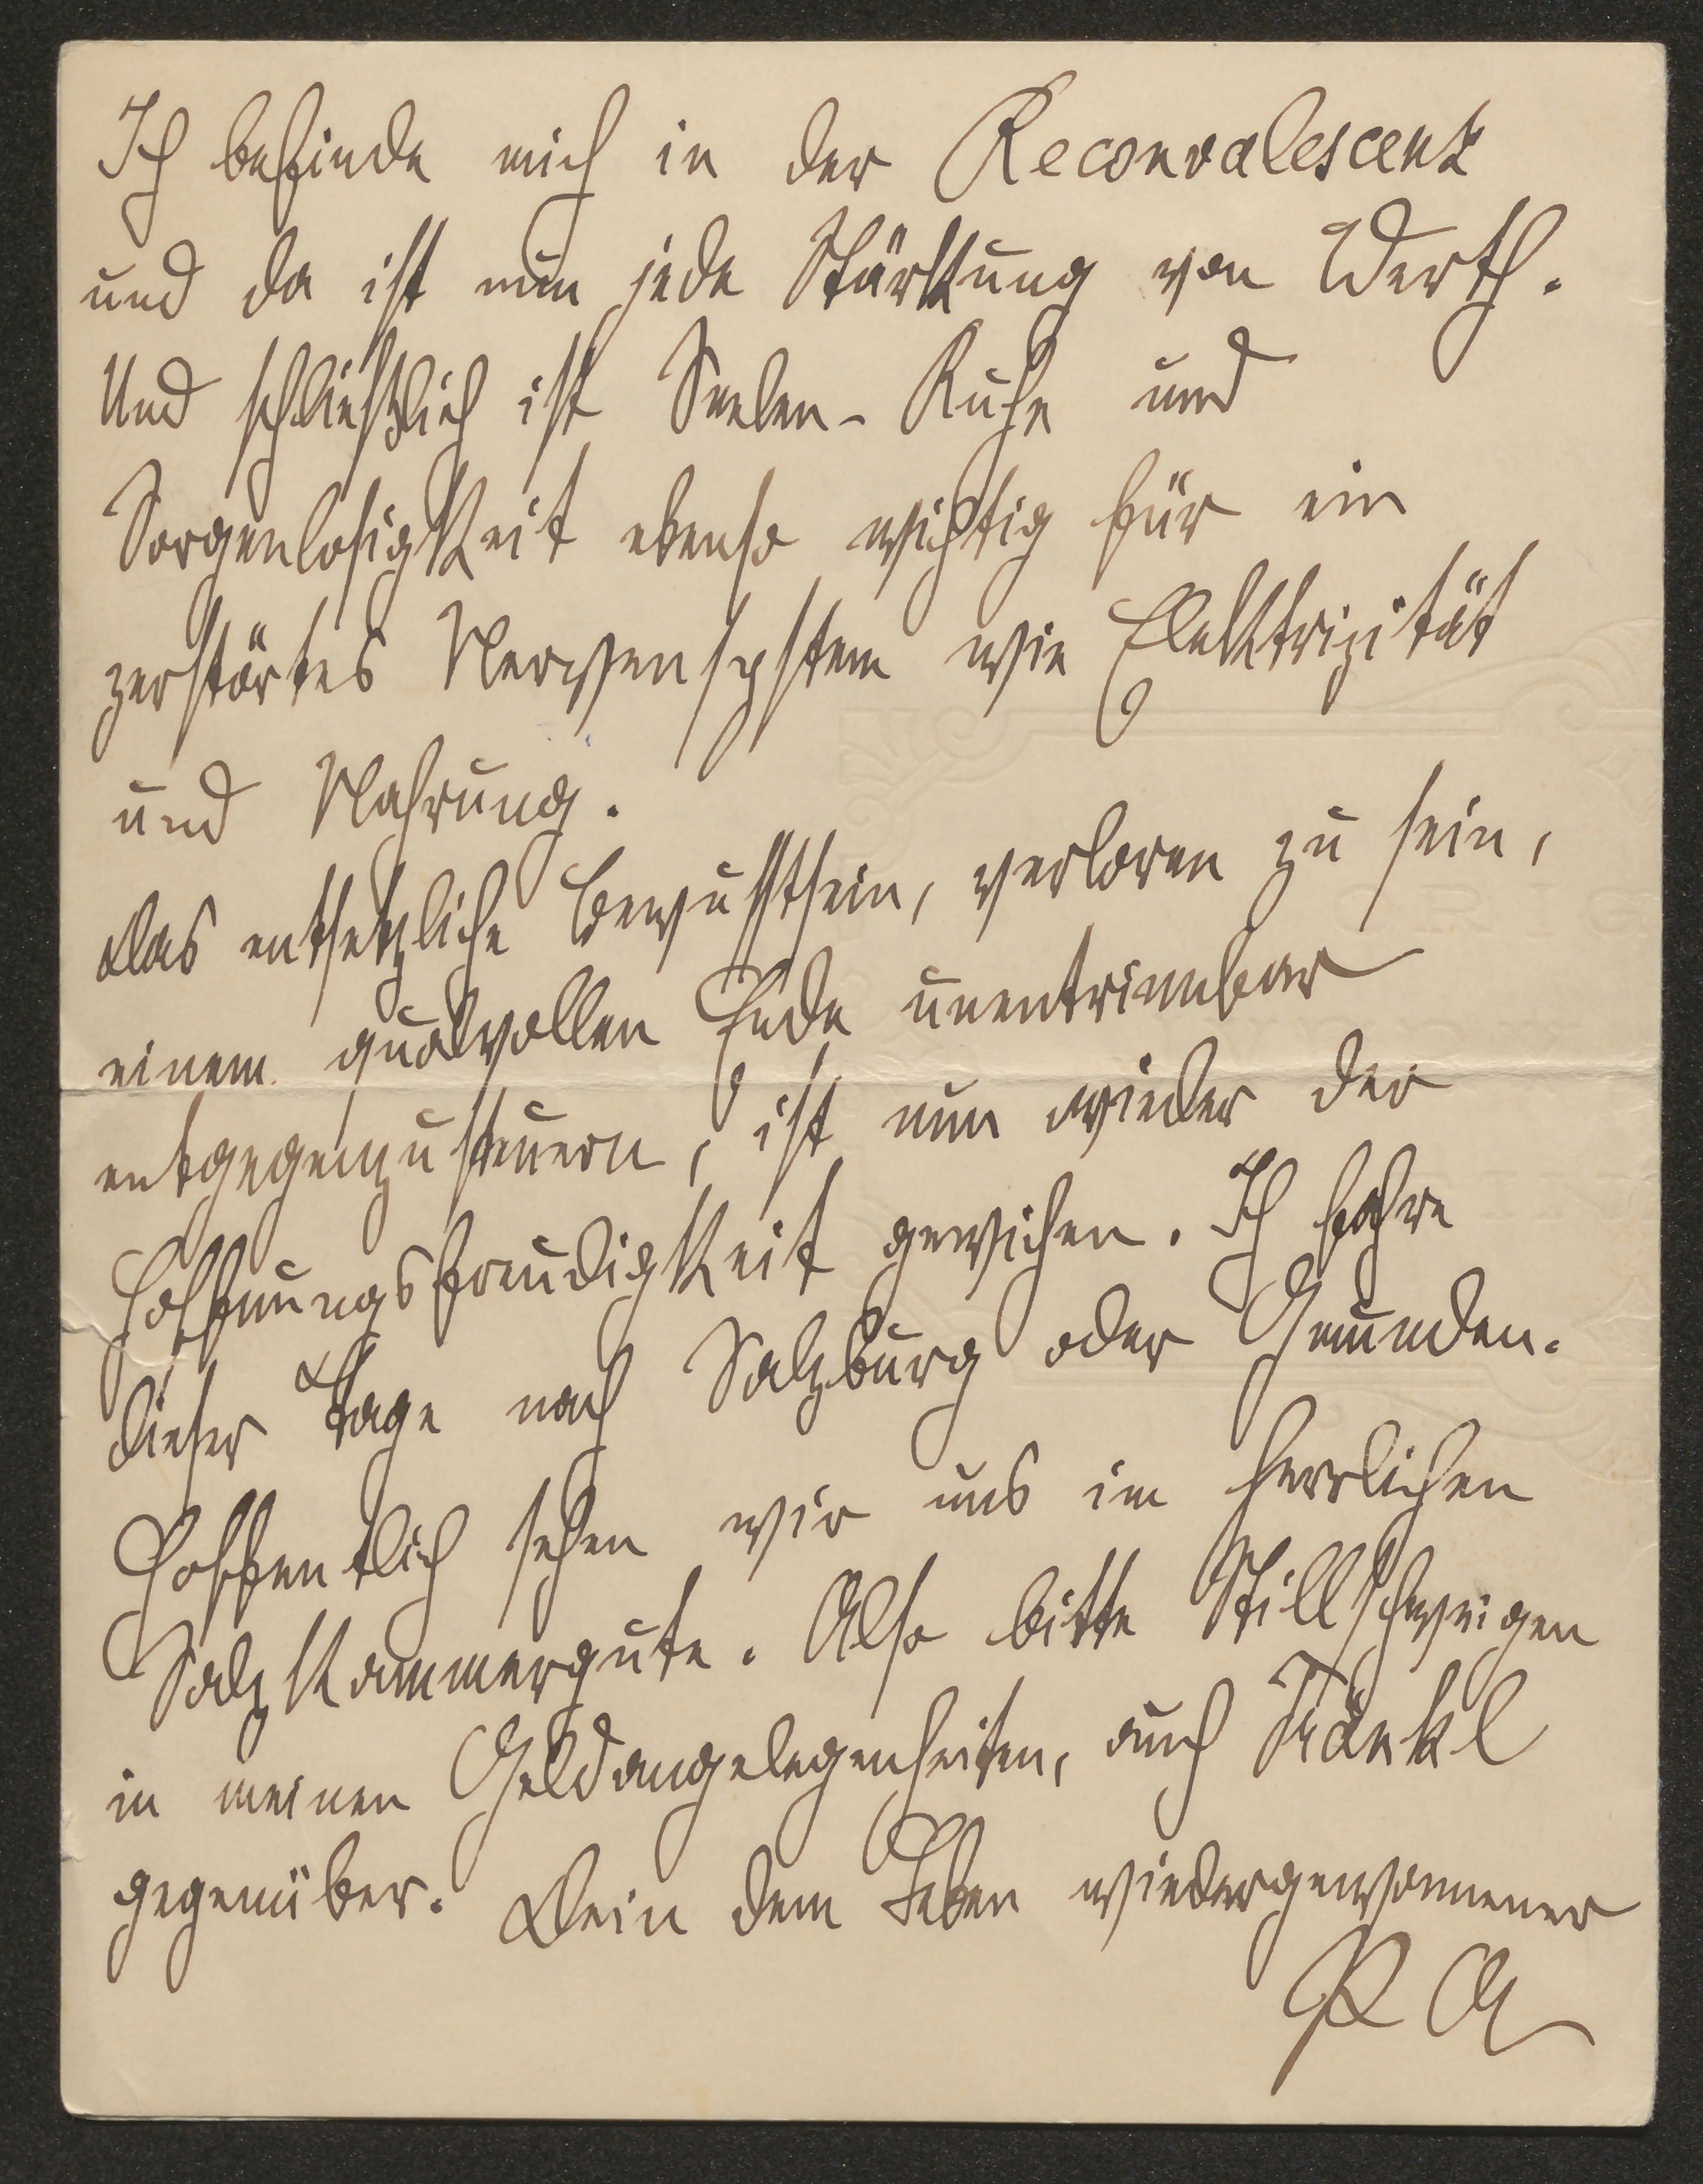 Ich befinde mich in der Reconvalescenz
und da ist nun jede Stärkung von Werth.
Und schließlich ist Seelen-Ruhe und
Sorgenlosigkeit ebenso wichtig für ein
zerstörtes Nervensystem wie Elektrizität
und Nahrung.
Das entsetzliche Bewusstsein, verloren zu sein,
einem qualvollen Ende unentrinnbar
entgegenzusteuern, ist nun wieder der
Hoffnungsfreudigkeit gewichen. Ich fahre
dieser Tage nach Salzburg oder Gmunden.
Hoffentlich sehen wir uns im herrlichen
Salzkammergute. Also bitte Stillschweigen
in meinen Geldangelegenheiten, auch
gegenüber. Dein dem Leben wiedergewonnener
PA